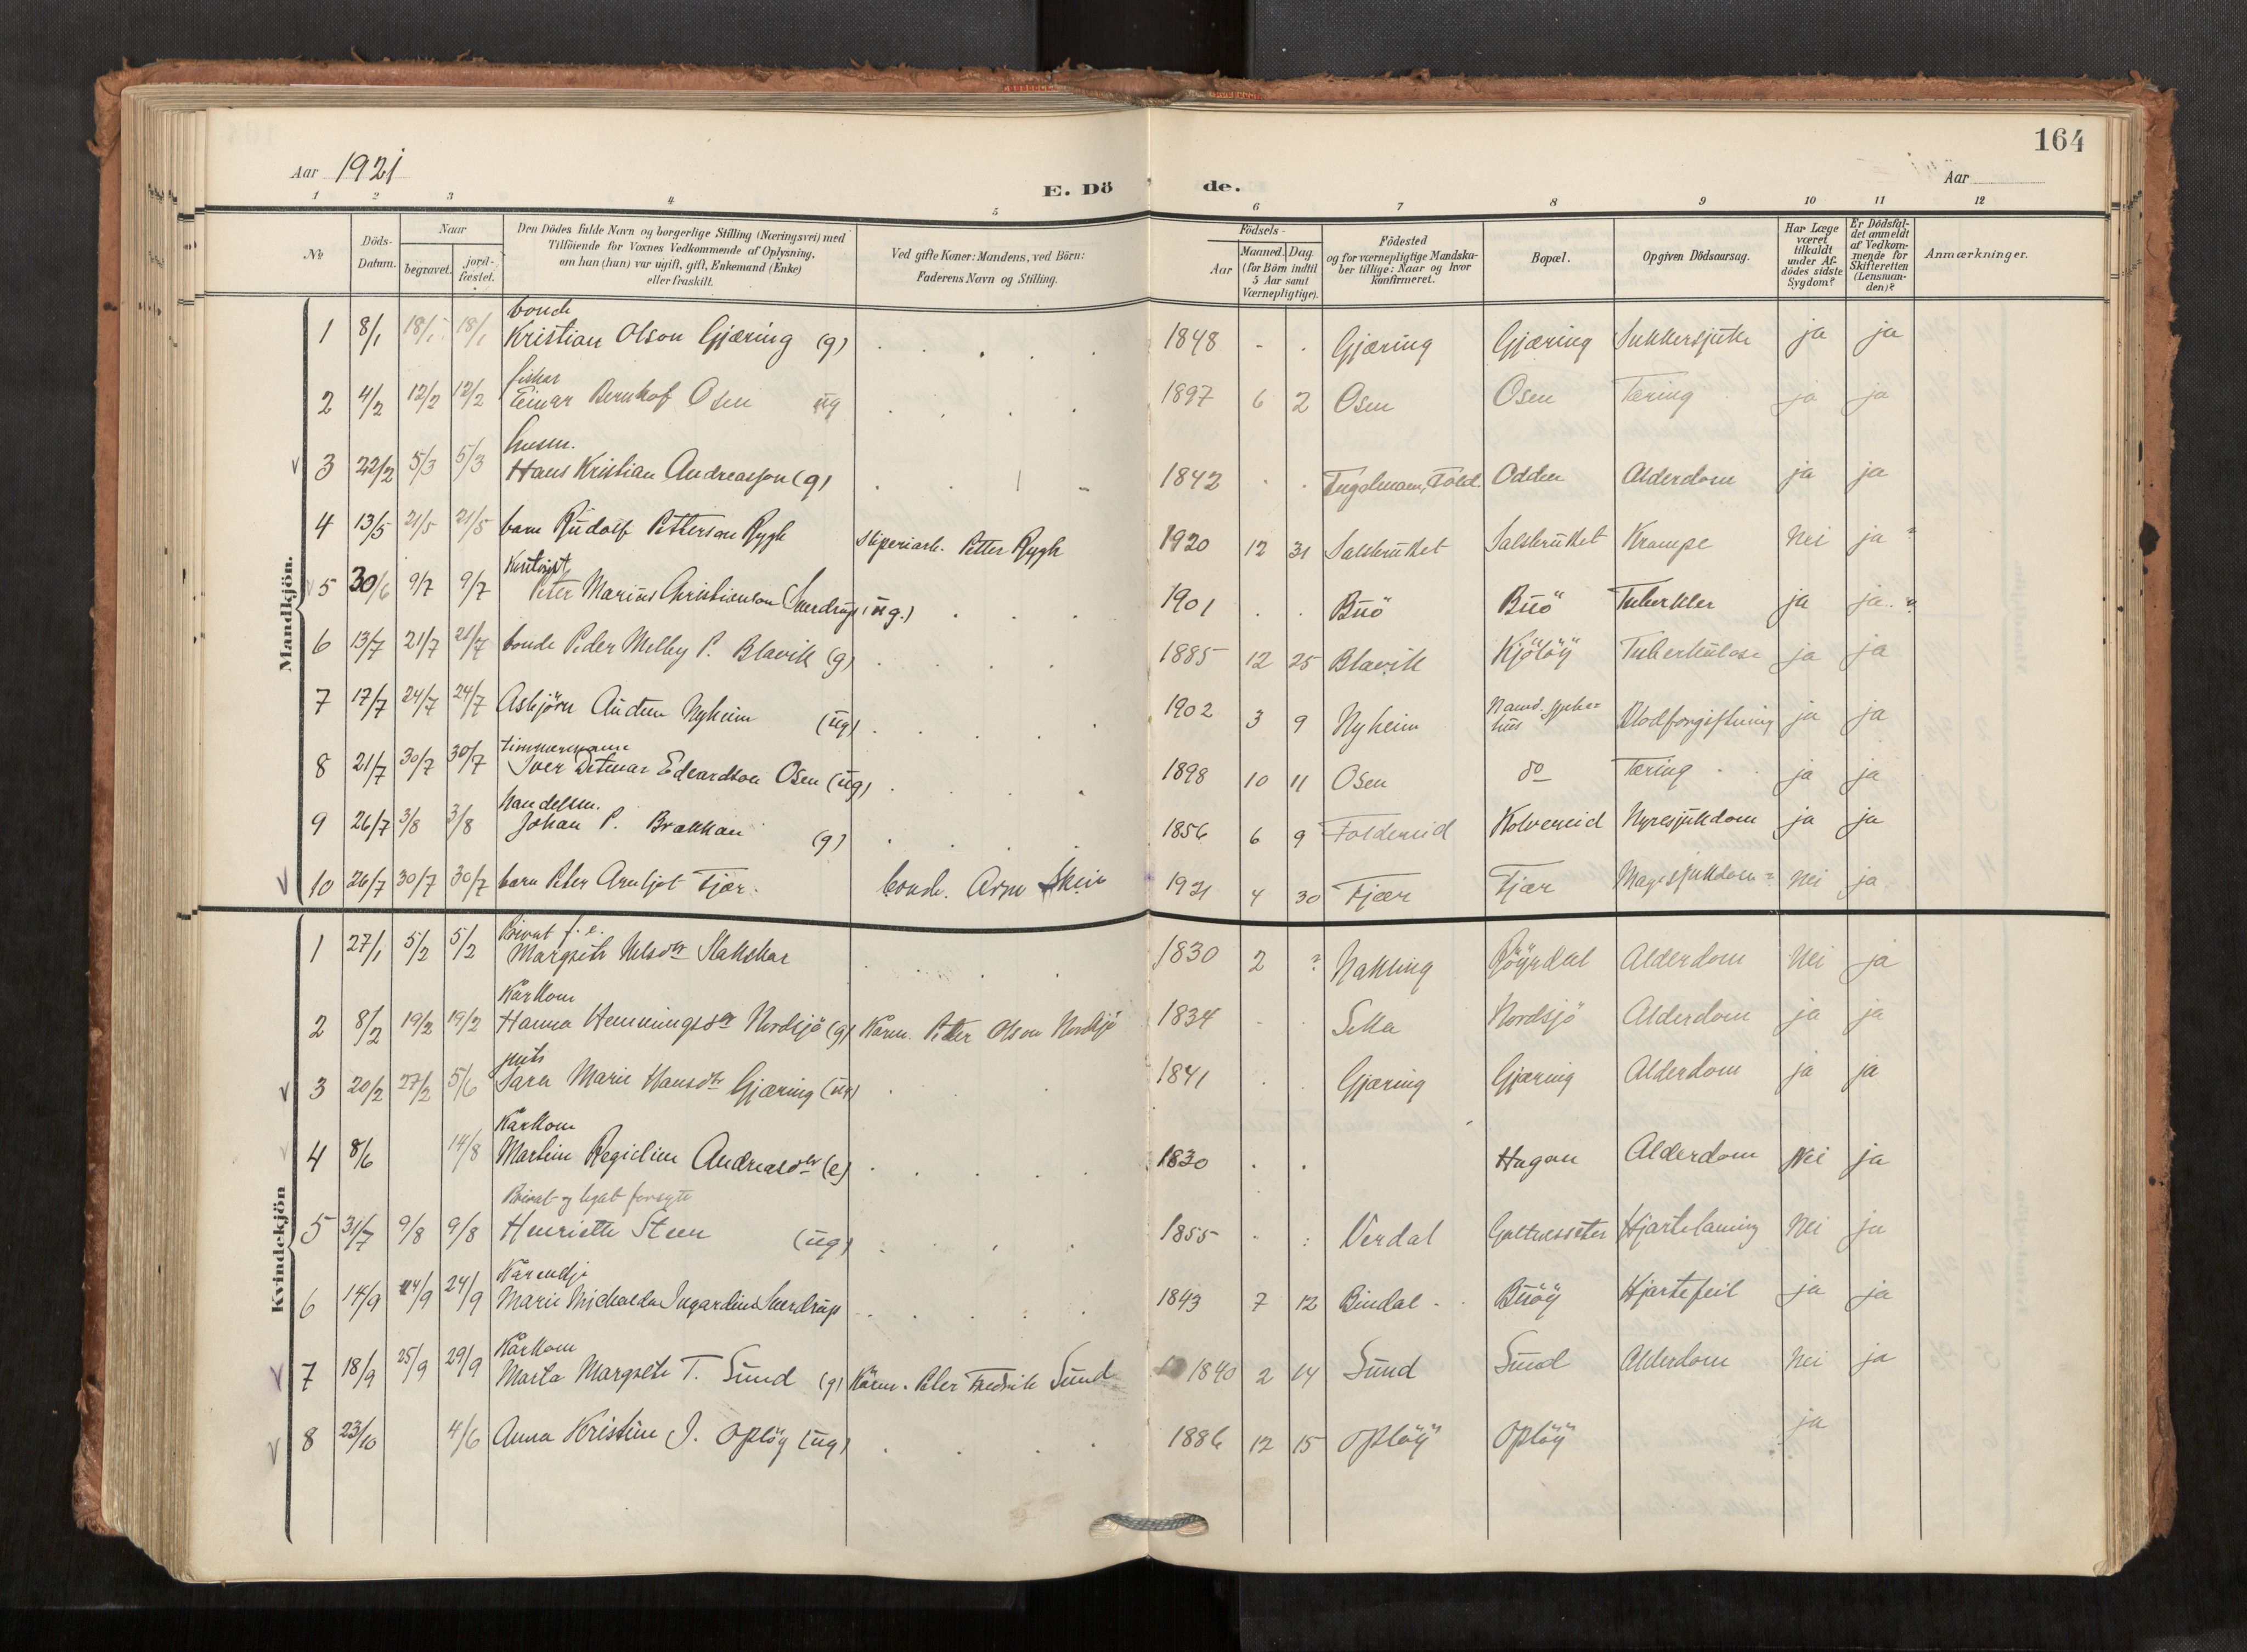 164
Aar 1921
E. Dö de.
Aar
1 2 3 4 5 6 7 8 9 10 11 12
No
Döds-Datum.
Naar
begravet.
jord-fæstet.
Den Dödes fulde Navn og borgerlige Stilling (Næringsvei) med
Tilföiende for Voxnes Vedkommende af Oplysning,
om han (hun) var ugift, gift, Enkemand (Enke)
eller fraskilt.
Ved gifte Koner: Mandens, ved Börn:
Faderens Navn og Stilling.
Födsels-
Aar
Maaned. Dag.
(for Börn indtil
5 Aar samt
Værnepligtige).
Födested
og for værnepligtige Mandska-
ber tillige: Naar og hvor
konfirmeret.
Bopæl.
Opgiven Dödsaarsag.
Har Læge
været
tilkaldt
under Af-
dödes sidste
Sygdom?
Er Dödsfal-
det anmeldt
af Vedkom-
mende for
Skifteretten
(Lensman-
den)?
Anmærkninger.
Mandkjön.
bonde
1 8/1 18/1 18/1 Kristian Olson Gjæring (g) 1848 Gjæring Gjæring Sukkersjuke ja ja
fisker
2 4/2 12/2 12/2 Einar Bernhof Osen ug 1897 6 2 Osen Osen Tæring ja ja
husm.
3 22/2 5/3 5/3 Hans Kristian Andreasson (g) 1842 Fold. Odden Alderdom ja ja
4 13/5 21/5 21/5 barn Rudolf Petterson Rygh Sliperiarb. Petter Rygh 1920 12 31 Salsbruket Salsbruket Krampe Nei ja
5 30/6 9/7 9/7 Peter Marius Christianson Sverdrup (ug.) 1901 Buö Buö Tuberkler ja ja
6 13/7 21/7 21/7 bonde Peder Melby P. Blavik (g) 1885 12 25 Blavik Kjölöy Tuberkulose ja ja
7 17/7 24/7 24/7 Asbjörn Audun Nyheim (ug) 1902 3 9 Nyheim Namd. sjuke=
hus Blodforgiftning ja ja
timmermann
8 21/7 30/7 30/7 Iver Ditmar Edvardson Osen (ug) 1898 10 11 Osen do Tæring ja ja
Handelsm.
9 26/7 3/8 3/8 Johan P. Brakkan (g) 1856 6 9 Foldereid Kolvereid Nyresjukdom ja ja
10 26/7 30/7 30/7 barn Peter Arnljot Fjær. bonde. Arne Skein 1921 4 30 Fjær Fjær Magesjukdom? Nei ja
Kvindekjön
Privat f. e.
1 27/1 5/2 5/2 Margrete Nelsdtr Flakskar 1830 2 ? Nakling Röyrdal Alderdom Nei ja
Kårkone
2 8/2 19/2 19/2 Hanna Henningsdtr Nordsjö (g) Kårm. Petter Olson Nordsjö 1834 Sella Nordsjö Alderdom ja ja
3 20/2 27/2 5/6 Sara Marie Hansdtr Gjæring (ug) 1841 Gjæring Gjæring Alderdom ja ja
Kårkone
4 8/6 14/8 Martine Regieline Andreasdtr (e) 1830 Hagan Alderdom Nei ja
Privat og legat forsytt
5 31/7 9/8 9/8 Henriette Steen (ug) 1855 Verdal Galtnesseter Hjartelaming Nei ja
Kårenkje
6 14/9 24/9 24/9 Marie Michaelda Ingardine Sverdrup 1843 7 12 Bindal Buöy Hjartefeil ja ja
Kårkone
7 18/9 25/9 29/9 Marta Margrete T. Sund (g) Kårm. Peter Fredrik Sund 1840 2 14 Sund Sund Alderdom Nei ja
8 23/10 4/6 Anna Kristine J. Oplöy (ug) 1886 12 15 Oplöy Oplöy ja